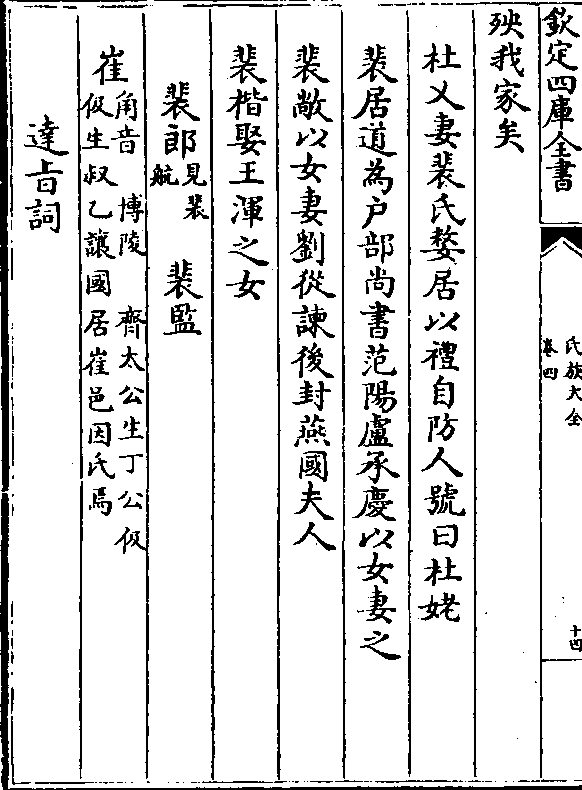 欽定四庫全書
氏族大全
卷四
十四
殃我家矣
杜乂妻裴氏嫠居以禮自防人號曰杜姥
裴居道為户部尚書范陽盧承慶以女妻之
裴敞以女妻劉從諫後封燕國夫人
裴楷娶王渾之女
裴郎見裴航 裴監
崔角音 博陵 齊太公生丁公伋
伋生叔乙讓國居崔邑因氏焉
達旨詞